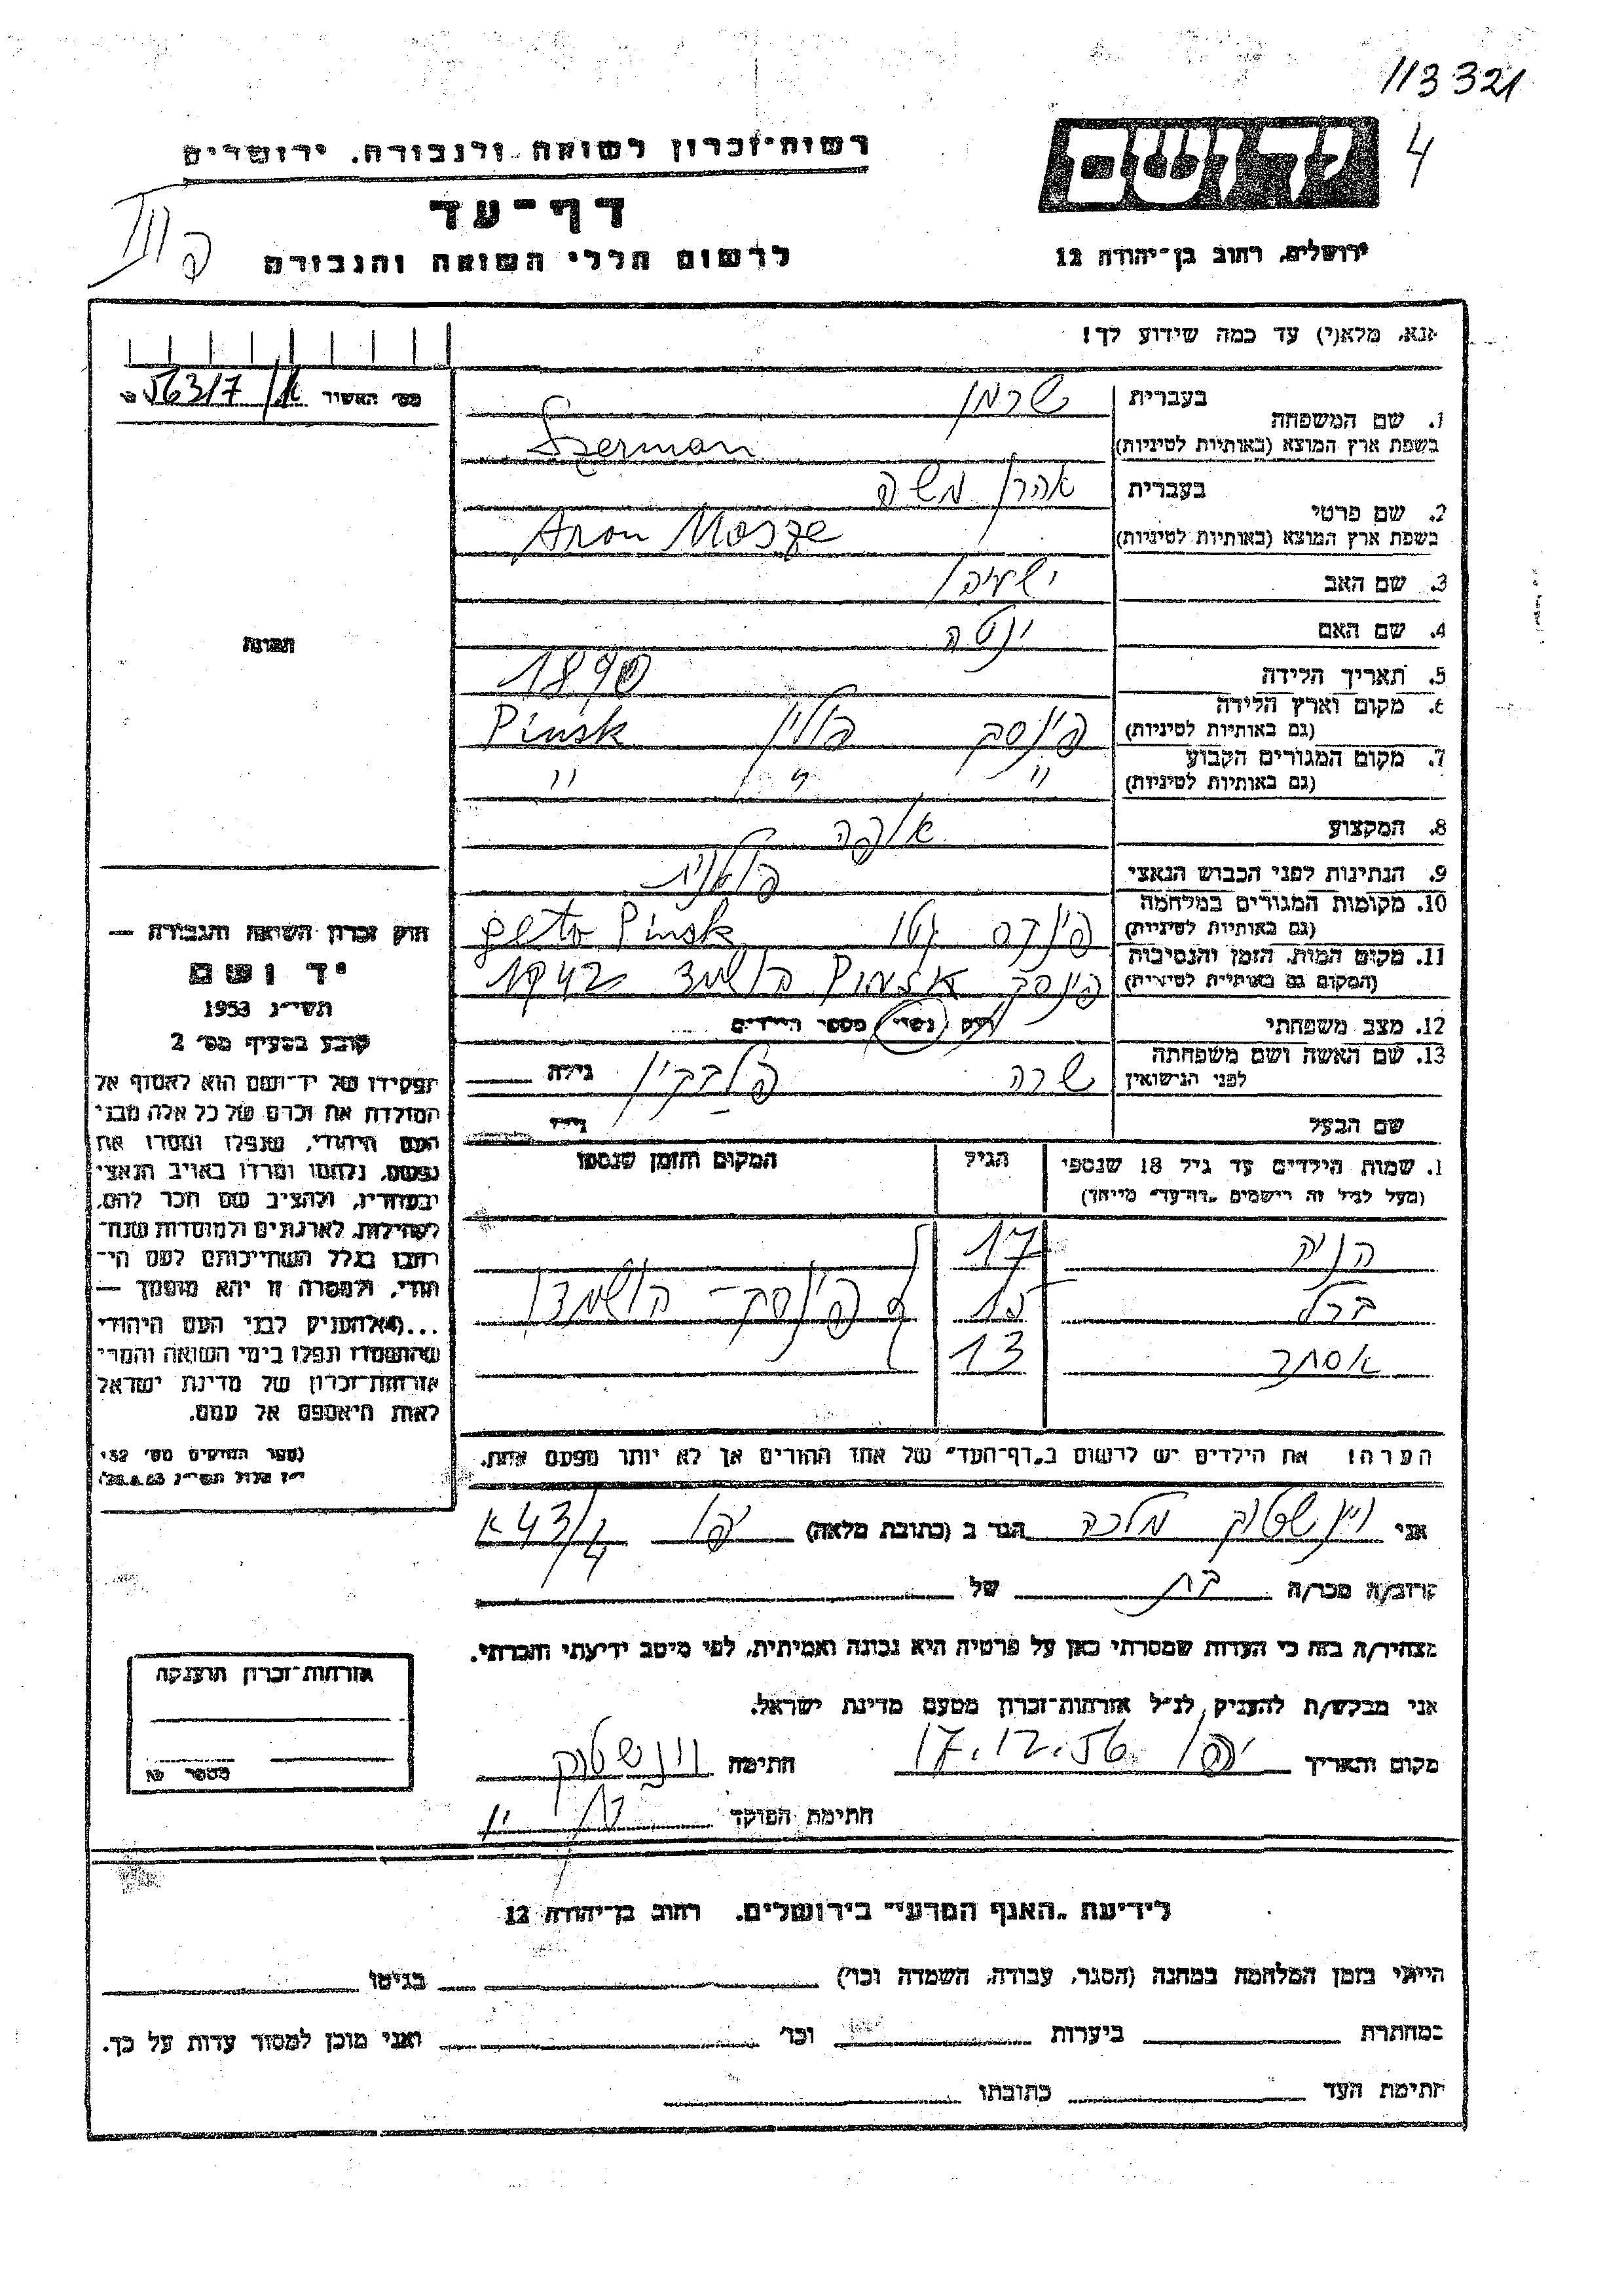 113321
4
יד ושם
ירושלים, רחוב בן-יהודה 12
רשות-זכרון לשואה ולגבורה, ירושלים
דף-עד
לרשום חללי השואה והגבורה
אנא, מלא(י) עד כמה שידוע לך!
מס' האשור 56317/
1. שם המשפחה בעברית שרמן
בשפת ארץ המוצא (באותיות לטיניות) Szerman
2. שם פרטי בעברית אהרן משה
בשפת ארץ המוצא (באותיות לטיניות) Aron Mosze
3. שם האב
4. שם האם ינטה
5. תאריך הלידה 1890
6. מקום וארץ הלידה (גם באותיות לטיניות) פינסק פולין Pinsk
7. מקום המגורים הקבוע (גם באותיות לטיניות) " " "
8. המקצוע אופה
9. הנתינות לפני הכבוש הנאצי פולנית
10. מקומות המגורים במלחמה (גם באותיות לטיניות) פינסק גטו geto Pinsk
11. מקום המות, הזמן והנסיבות (המקום גם באותיות לטיניות) פינסק הושמד 1942
12. מצב משפחתי נשוי מספר הילדים
13. שם האשה ושם משפחתה לפני הנישואין שרה גילה
שם הבעל גילו
תמונה
חוק זכרון השואה והגבורה —
יד ושם
תשי"ג 1953
קובע בסעיף מס' 2
תפקידו של יד-ושם הוא לאסוף אל
המולדת את זכרם של כל אלה מבני
העם היהודי, שנפלו ומסרו את
נפשם, נלחמו ומרדו באויב הנאצי
ובעוזריו, ולהציב שם וזכר להם,
לקהילות, לארגונים ולמוסדות שנח-
רבו בגלל השתייכותם לעם הי-
הודי, ולמטרה זו יהא מוסמך —
...(4) להעניק לבני העם היהודי
שהושמדו ונפלו בימי השואה והמרי
אזרחות-זכרון של מדינת ישראל
לאות היאספם אל עמם.
(ספר החוקים מס' 132
י"ז אלול תשי"ג 28.8.53)
1. שמות הילדים עד גיל 18 שנספו הגיל המקום והזמן שנספו
(מעל לגיל זה רישמים "דף-עד" מיוחד)
הניה 17
ברל 15 פינסק - הושמדו
אסתר 13
הערה! את הילדים יש לרשום ב"דף-העד" של אחד ההורים אך לא יותר מפעם אחת.
אני ויינשטוק מלכה הגר ב (כתובת מלאה) יפו 43/4 א
קרוב/ה מכר/ה בת של
מצהיר/ה בזה כי העדות שמסרתי כאן על פרטיה היא נכונה ואמיתית, לפי מיטב ידיעתי והכרתי.
אני מבקש/ת להעניק לנ"ל אזרחות-זכרון מטעם מדינת ישראל.
מקום ותאריך יפו 17.12.56 חתימה ויינשטוק
חתימת הפוקד
אזרחות-זכרון הוענקה
מספר
לידיעת "האגף המדעי" בירושלים, רחוב בן-יהודה 12
הייתי בזמן המלחמה במחנה (הסגר, עבודה, השמדה וכו') בגיטו
במחתרת ביערות וכו' ואני מוכן למסור עדות על כך.
חתימת העד כתובתו